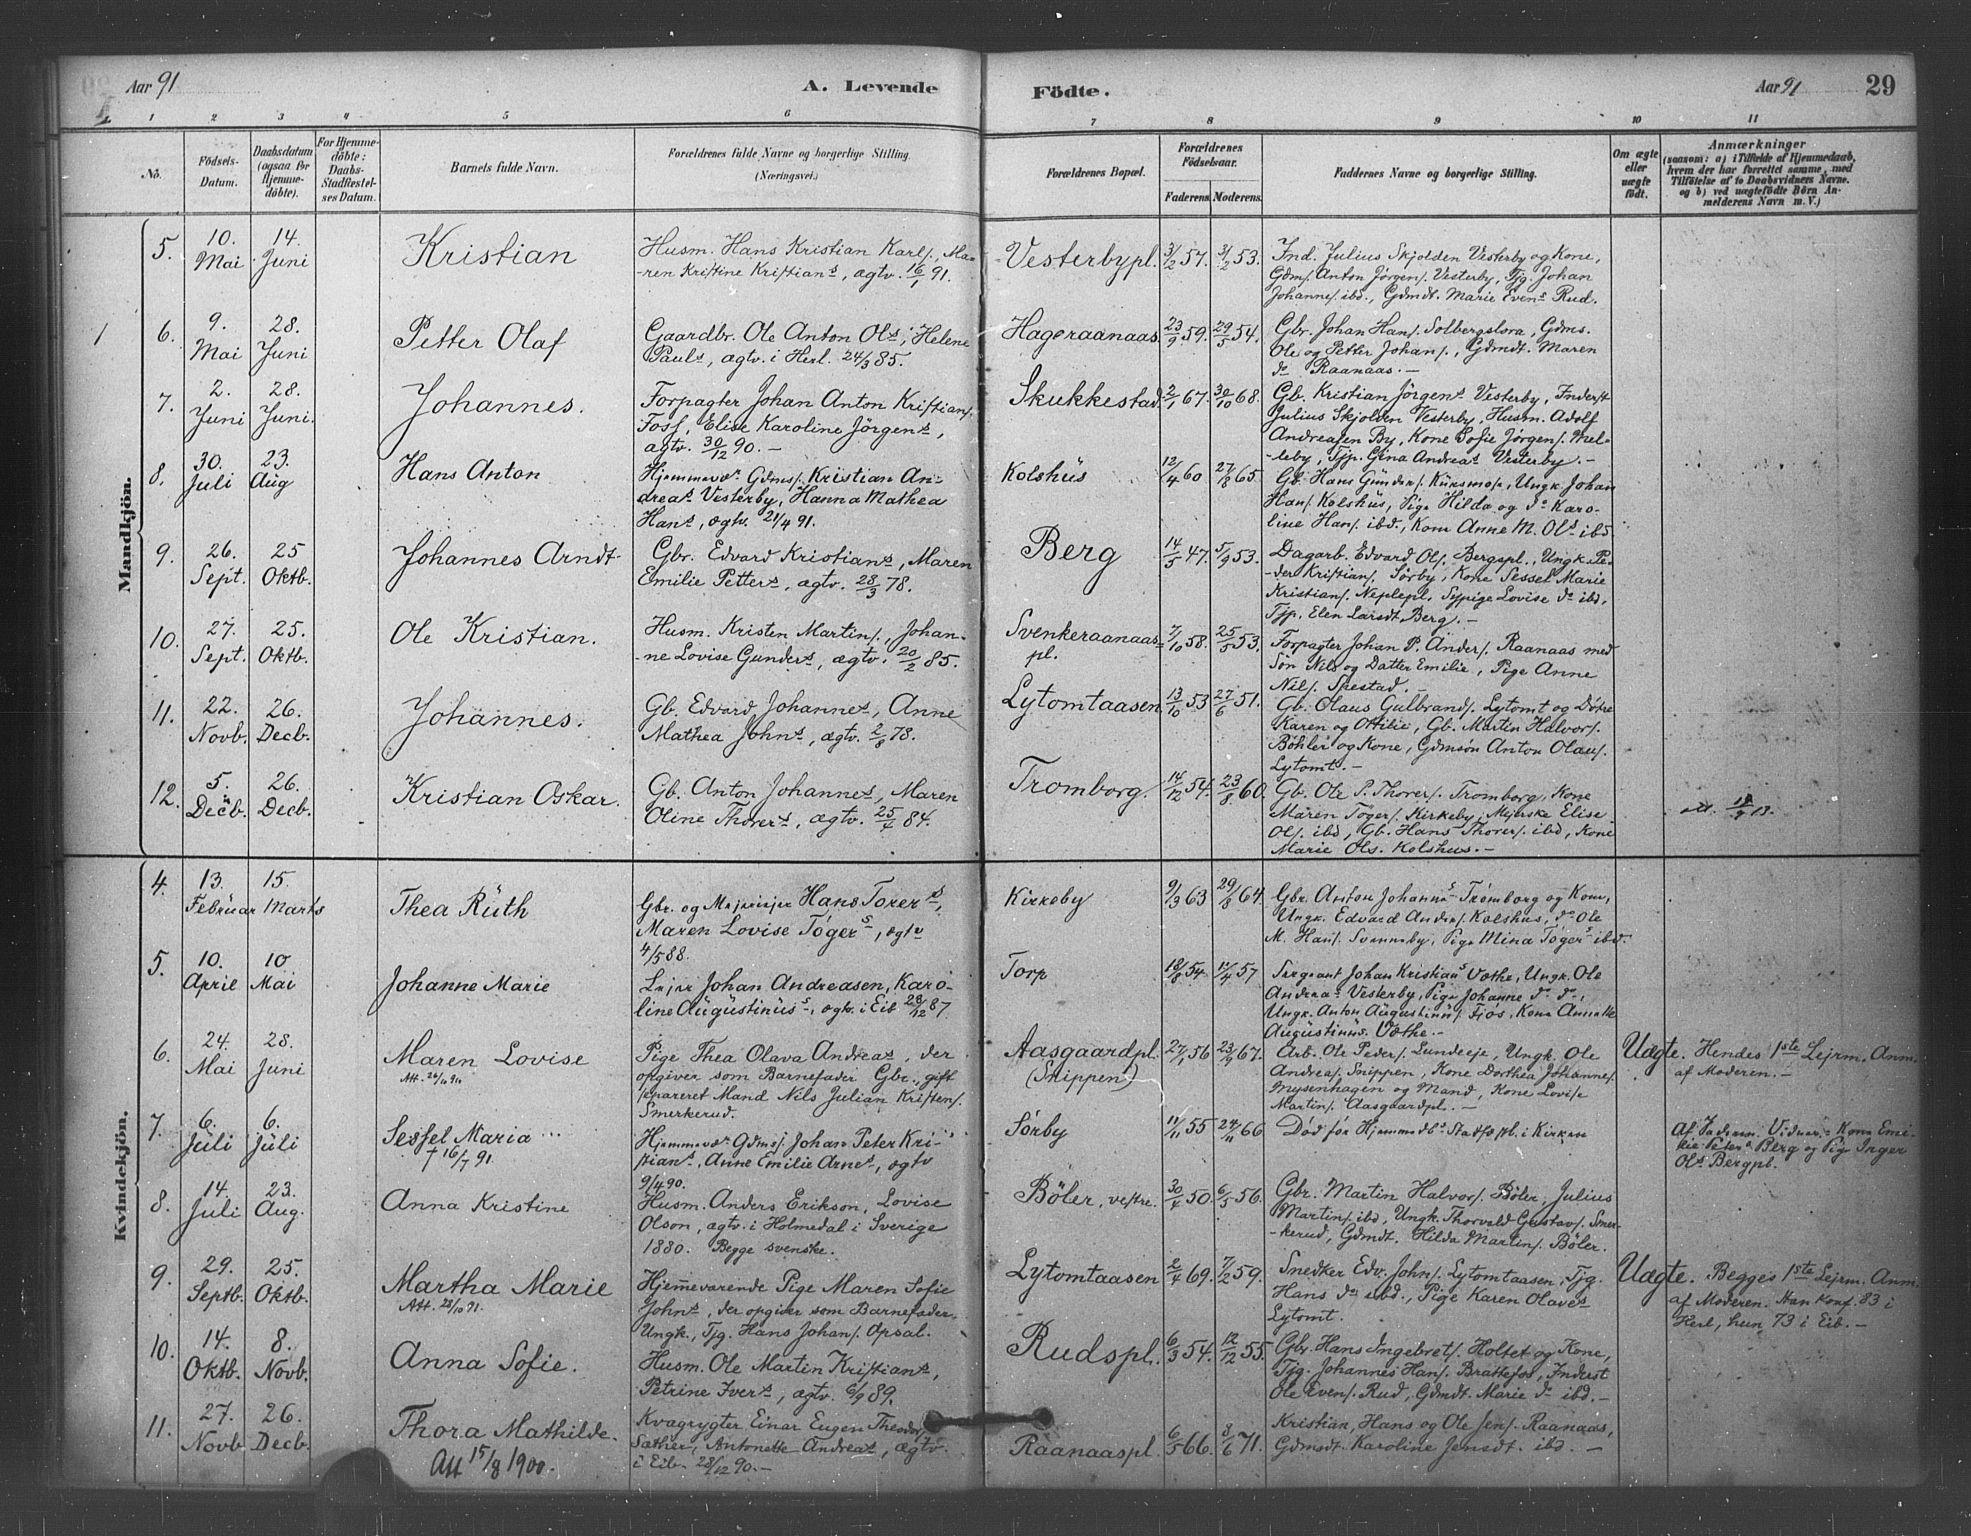 Aar 91
A. Levende
Födte.
Aar 91
29
1 2 3 4 5 6 7 8 9 10 11
No.
Födsels-
Datum.
Daabsdatum
(ogsaa for
Hjemme-
döbte).
For Hjemme-
döbte:
Daabs-
Stadfæstel-
ses Datum.
Barnets fulde Navn.
Forældrenes fulde Navne og borgerlige Stilling.
(Næringsvei.)
Forældrenes Bopæl.
Forældrenes
Födselsaar.
Faderens. Moderens.
Faddernes Navne og borgerlige Stilling.
Om ægte
eller
uægte
födt.
Anmærkninger
(saasom: a) i Tilfælde af Hjemmedaab,
hvem der har forrettet samme, med
Tilföielse af to Daabsvidners Navne.
og b) ved uægtefödte Börn An-
melderens Navn m. V.)
Mandkjön.
5. 10. Mai 14. Juni
Kristian
Husm. Hans Kristian Karls., Ma-
ren Kristine Kristians, ægtv. 16/1 91.
Vesterbypl. 3/2 57. 3/2 53.
Ind. Julius Skjolden Vesterby og Kone,
Gdms. Anton Jörgens. Vesterby, Tjg. Johan
Johannes. ibd., Gdmdt. Marie Evens Rud.
1
6. 9. Mai 28. Juni
Petter Olaf
Gaardbr. Ole Anton Ols, Helene
Pauls, ægtv. i Herl. 24/3 85.
Hageraanaas. 23/9 59. 29/5 54.
Gbr. Johan Hans. Solbergslora, Gdms.
Ole og Petter Johans., Gdmdt. Maren
do Raanaas. -
7. 2. Juni 28. Juni.
Johannes.
Forpagter Johan Anton Kristians.
Foss, Elise Karoline Jörgens,
ægtv. 30/12 90. -
Skukkestad. 2/1 67. 30/10 68.
Gb. Kristian Jörgens Vesterby, Inderst
Julius Skjolden Vesterby, Husm. Adolf
Andreasen By, Kone Sofie Jörgens. Mel-
-leby, Tjp. Gina Andreas Vesterby. -
8. 30. Juli 23. Aug
Hans Anton
Hjemmevær Gdms. Kristian An-
dreas Vesterby, Hanna Mathea
Hans, ægtv. 21/4 91.
Kolshus 12/4 60 27/8 65.
Gb. Hans Gunders. Kuksmose, Ungk. Johan
Hans. Kolshus, Pige Hilda og do Karo-
line Hans. ibd., Kone Anne M. Ols ibd
9. 26. Sept. 25 Oktb.
Johannes Arndt
Gbr. Edvard Kristians, Maren
Emilie Petters, ægtv. 28/3 78.
Berg 14/5 47. 5/9 53.
Dagarb. Edvard Ols. Bergspl., Ungk. Pe-
-der Kristians. Sörby, Kone Sessel Marie
Kristians. Neplepl., Sypige Lovise do ibd.
Tjp. Elen Larsdt. Berg. -
10. 27. Sept. 25. Oktb.
Ole Kristian.
Husm. Kristen Martins., Johan-
-ne Lovise Gunders, ægtv. 20/2 85.
Svenkeraanaas
pl. 7/10 58. 25/5 53.
Forpagter Johan P. Anders. Raanaas med
Sön Nils og Datter Emilie, Pige Anne
Nils. Spestad. -
11. 22. Novb. 26. Decb.
Johannes.
Gb. Edvard Johannes, Anne
Mathea Johns, ægtv. 2/8 78.
Lytomtaasen 13/10 53 27/6 51.
Gb. Olaus Gulbrands. Lytomt og Döttre
Karen og Ottilie, Gb. Martin Halvors.
Böhler og Kone, Gdmsön Anton Olaus.
Lytomt. -
12. 5. Decb. 26. Decb.
Kristian Oskar.
Gb. Anton Johannes, Maren
Oline Thorers, ægtv. 25/4 84.
Tromborg. 14/12 54. 23/8 60.
Gb. Ole P. Thorers. Tromborg, Kone
Maren Tögers. Kirkeby, Meierske Elise
Ols. ibd, Gb. Hans Thorers. ibd, Kone
Marie Ols. Kolshus. -
att. 18/9 13.
Kvindekjön.
4. 13. Februar 15. Marts
Thea Ruth
Gbr. og Meieriejer Hans Torers,
Maren Lovise Tögers, ægtv
4/5 88.
Kirkeby 9/3 63 29/8 64.
Gbr. Anton Johanns Tromborg og Kone,
Ungk. Edvard Anders. Kolshus, do Ole
M. Hans. Svenneby, Pige Mina Tögers ibd.
5. 10. April 10 Mai
Johanne Marie
Lejer Johan Andreasen, Karo-
line Augustinus, ægtv. i Eib 28/12 87
Torp 18/8 54 11/4 57
Sergeant Johan Kristians Vethe, Ungk. Ole
Andreas Vesterby, Pige Johanne do do,
Ungk. Anton Augustinus. Fjös, Kone Anna M.
Augustinus. Vethe. -
6. 24. Mai 28. Juni
Maren Lovise
Att. 26/10 910
Pige Thea Olava Andreas, der
opgiver som Barnefader Gbr., gift
separeret Mand Nils Julian Kristens.
Smerkerud.
Aasgaardpl.
(Snippen) 27/1 56 23/9 67.
Arb. Ole Peders. Lundeeje, Ungk. Ole
Andreas. Snippen, Kone Dorthea Johannes.
Mysenhagen og Mand, Kone Lovise
Martins. Aasgaardpl. -
Uægte. Hendes 1ste Lejrm. Anm.
af Moderen. -
7. 6. Juli 6. Juli
Sessel Maria
† 16/7 91.
Hjemmevær Gdms. Johan Peter Kri-
stians, Anne Emilie Arnes, ægtv
9/4 90.
Sörby 11/11 55 24/11 66
Död för Hjemmedbs Stadfæst. i Kirken
Af Faderen. Vidner: Kone Emi-
lie Peters Berg og Pige Inger
Ols Bergpl.
8. 14. Juli 23. Aug.
Anna Kristine
Husm. Anders Erikson, Lovise
Olson, ægtv. i Holmedal i Sverige
1880. Begge svenske.
Böler, vestre. 30/4 50. 6/5 56.
Gbr. Martin Halvors. Böler, Julius
Martins. ibd, Ungk. Thorvald Gustavs. Smer-
-kerud, Gdmdt. Hilda Martins. Böler.
9. 29. Septb. 25. Oktb.
Martha Marie
Att. 28/10 91.
Hjemmeværende Pige Maren Sofie
Johns, der opgiver som Barnefader
Ungk., Tjg. Hans Johans. Opsal.
Lytomtaasen 2/4 69. 7/2 59.
Snedker Edv. Johns. Lytomtaasen, Tjg.
Hans do ibd., Pige Karen Olaves
Lytomt.
Uægte. Begges 1ste Lejrm. Anm.
af Moderen. Han konf. 83 i
Herl, hun 73 i Eib. -
10. 14. Oktb. 8. Novb.
Anna Sofie.
Husm. Ole Martin Kristians,
Petrine Ivers, ægtv. 6/9 89.
Rudspl. 6/3 54. 12/12 55.
Gbr. Hans Ingebrets. Holtet og Kone,
Tjg. Johannes Hans. Brattefos, Inderst
Ole Evens. Rud, Gdmdt. Marie do ibd. -
11. 27. Novb 26. Decb.
Thora Mathilde.
Att 15/8 1900.
Kvægrygter Einar Eugen Theodor
Sæther, Antonette Andreas, ægtv.
i Eib. 28/12 90. -
Raanaaspl. 6/5 66. 8/6 71.
Kristian, Hans og Ole Jens. Raanaas,
Gdmdt. Karoline Jensdt. ibd. -